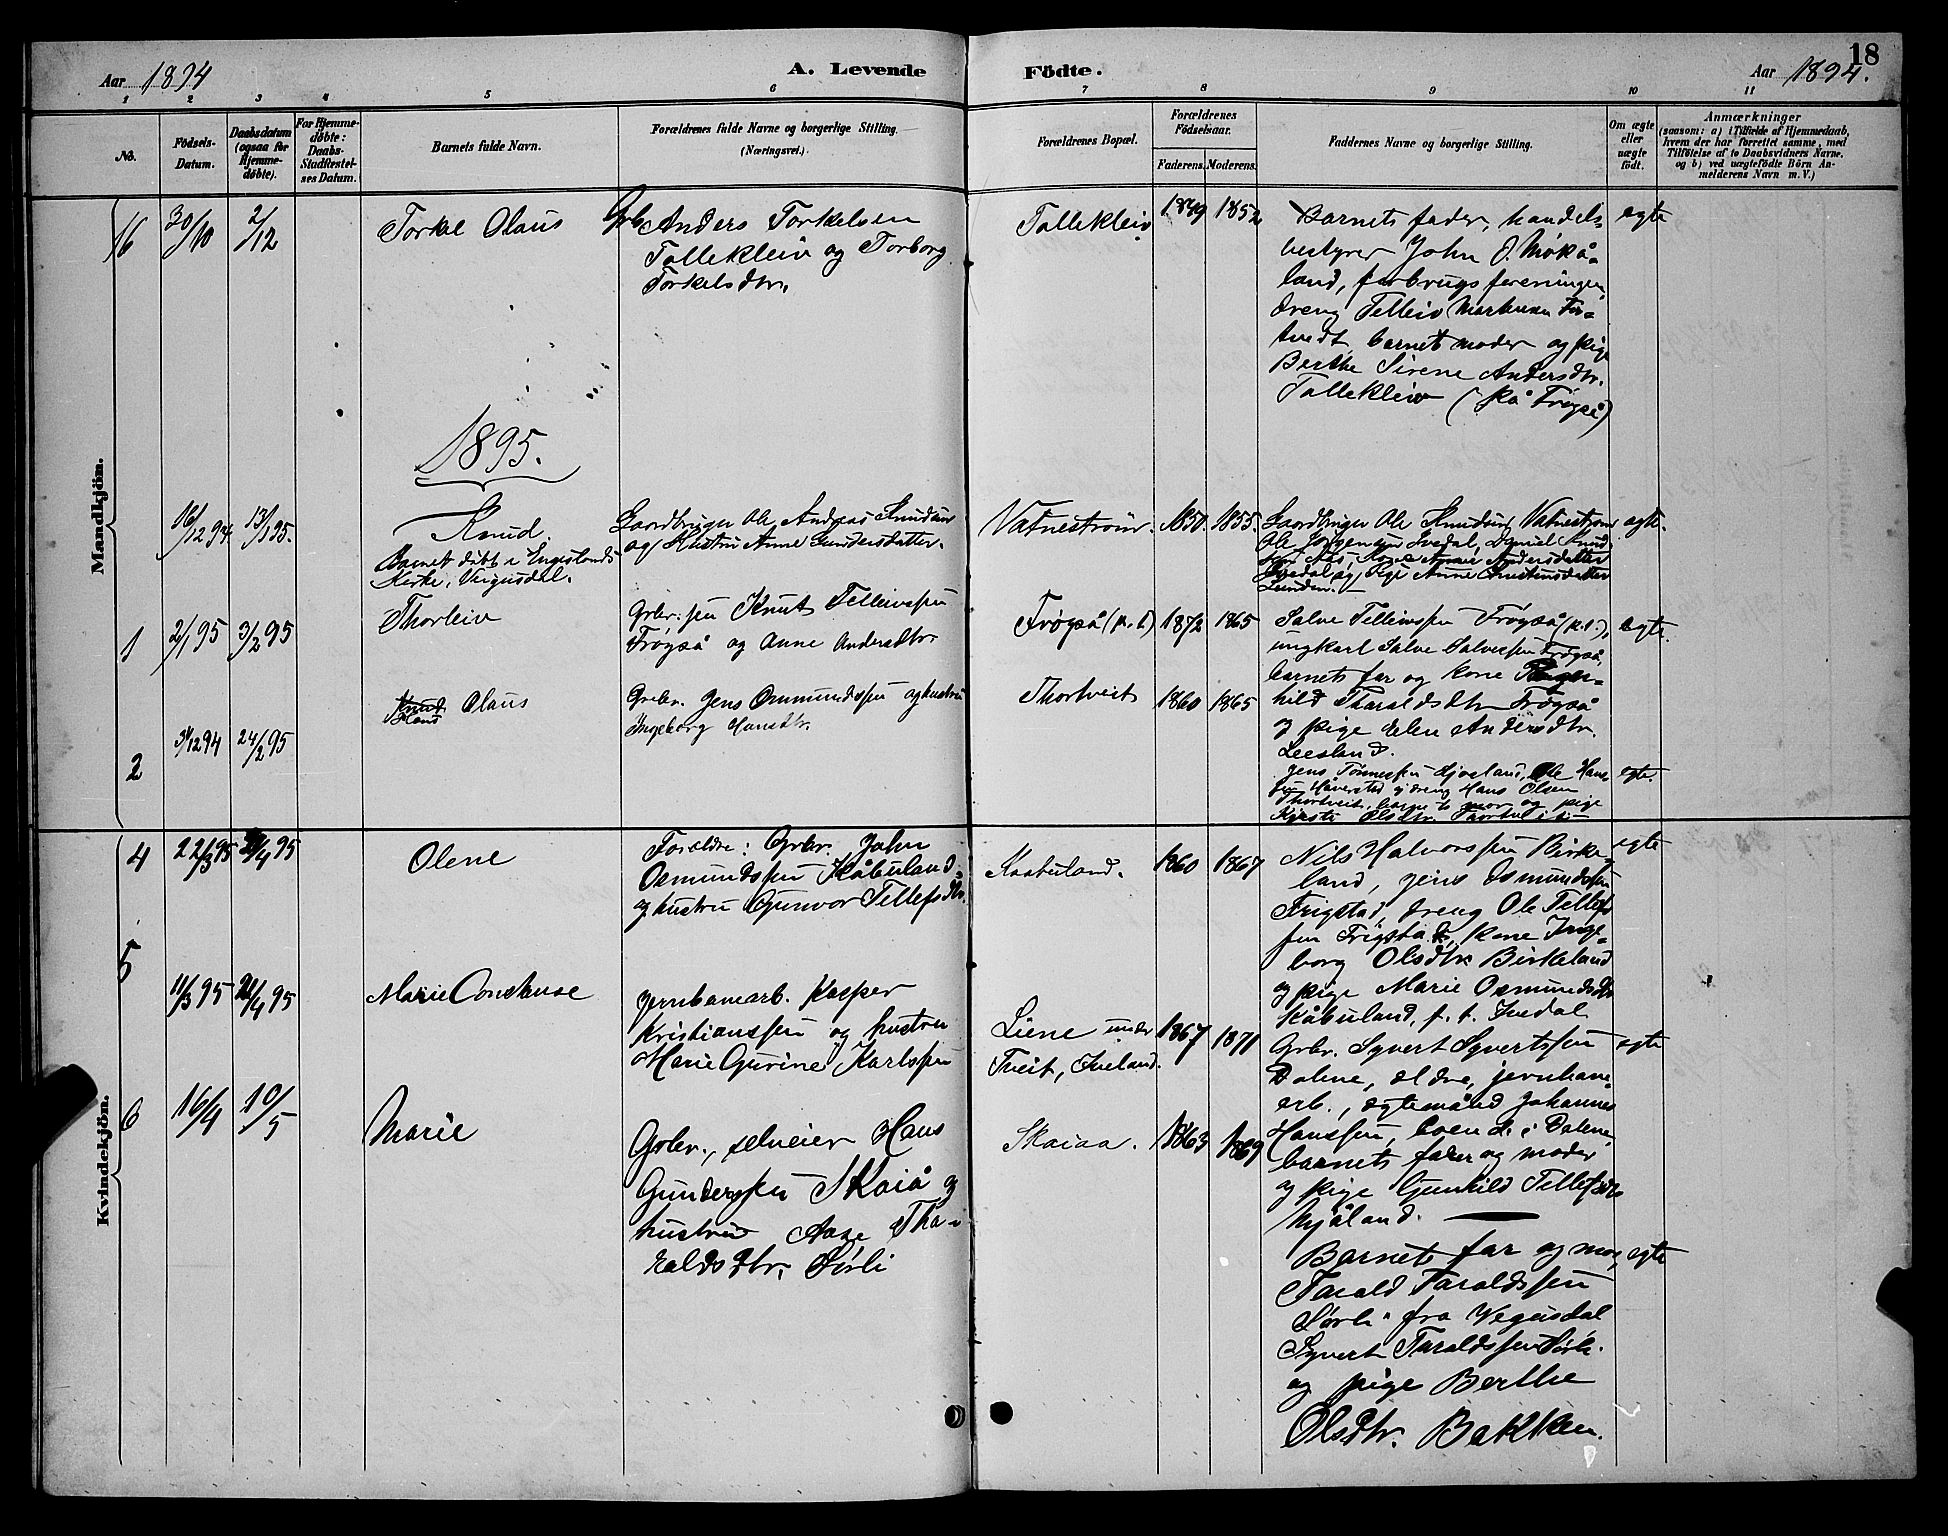 Aar 1894
A. Levende
Födte.
Aar 1894.
18
1
2
3
4
5
6
7
8
9
10
11
No.
Födsels-
Datum.
Daabsdatum
(ogsaa for
Hjemme-
døbte).
For Hjemme-
døbte:
Daabs-
Stadfæstel-
ses Datum.
Barnets fulde Navn.
Forældrenes fulde Navne og borgerlige Stilling.
(Næringsvei.)
Forældrenes Bopæl.
Forældrenes
Födselsaar.
Faderens.
Moderens.
Faddernes Navne og borgerlige Stilling.
Om ægte
eller
uægte
födt.
Anmærkninger
(saasom: a) i Tilfælde af Hjemmedaab,
hvem der har forrettet samme, med
Tilföielse af to Daabsvidners Navne,
og b) ved uægtefödte Börn An-
melderens Navn m. V.)
Mandkjön.
16
30/10
2/12
Torkel Olaus
Grb. Anders Torkelsen
Tallekleiv og Torborg
Torkelsdtr.
Tallekleiv
1849
1852
Barnets fader, handels-
bestyrer John O. Mykå-
land, forbrugsforeningen,
dreng Telleiv Markusen Tor-
tvedt barnets moder og pige
Berthe Sirene Andersdtr.
Tallekleiv (på Frøyså)
egte
1895.
16/12 94
13/1 95.
Knud.
Barnet døbt i Engeslands
Kirke, Vegusdal.
Gaardbruger Ole Andreas Knudsen
og Hustru Anne Gundersdatter.
Vatnestrøm.
1850.
1855.
Gaardbruger Ole Knudsen Vatnestrøm
Ole Jørgensen Ivedal, Daniel Knud-
sen Aas, Kone Anne Andersdatter
Ivedal og Pige Anne Christensdatter
Lunden.
ægte.
1
2/1 95
3/2 95
Thorleiv
Grbr. søn Knut Telleivssen
Frøyså og Anne Andersdtr
Frøyså (p.t.)
1872
1865
Salve Telleivssen Frøyså (p.t.),
ungkarl Salve Salvessen Frøyså,
barnets far og kone Ragn-
hild Tharaldsdtr Frøyså
og pige Elen Andersdtr.
Leesland.
egte.
2
31/12 94
24/2 95
Knud
Hans Olaus
Grbr. Jens Osmundssen og hustru
Ingeborg Hansdtr.
Thortveit
1860
1865
Jens Tønnessen Kjosland, Ole Hans-
sen Håverstad og dreng Hans Olsen
Thortveit, barnets mor og pige
Kjersti Olsdtr Thortveit
egte.
Kvindekjön.
4
22/3 95
21/4 95
Olene
Foreldre: Grbr. John
Osmundssen Kåbuland
og hustru Gunvor Tellefsdtr
Kaabuland.
1860
1867
Nils Halvorssen Birke-
land, Jens Osmundssen
Frigstad, dreng Ole Tellefs
sen Frigstad, kone Inge-
borg Olsdtr Birkeland
og pige Marie Osmundsdtr
Kåbuland, p. t. Ivedal
egte
5
11/3 95
21/4 95
Marie Constanse
Jernbanarb. Kasper
Kristianssen og hustru
Marie Gurine Karlssen
Liene under
Tveit, Iveland.
1867
1871
Grbr. Syvert Syvertssen
Dalene, eldre, jernbane-
arb., ægtemand Johannes
Hanssen, boende i Dalene
barnets fader og moder
og pige Gunhild Tellefsdtr
Mjåland.
egte
6
16/4
10/5
Marie
Grbr., selveier Hans
Gunderssen Skaiå og
hustru Aase Tha-
raldsdtr. Sørli
Skaiaa.
1863
1869
Barnets far og mor,
Tarald Taraldssen
Sørli fra Vegusdal
Syvert Taraldssen Sørli.
og pige Berthe
Olsdtr. Bakken.
egte